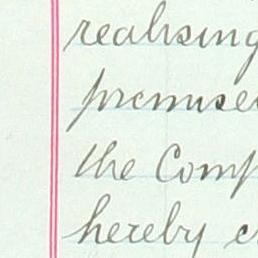 realising
premise
the Comp
hereby c